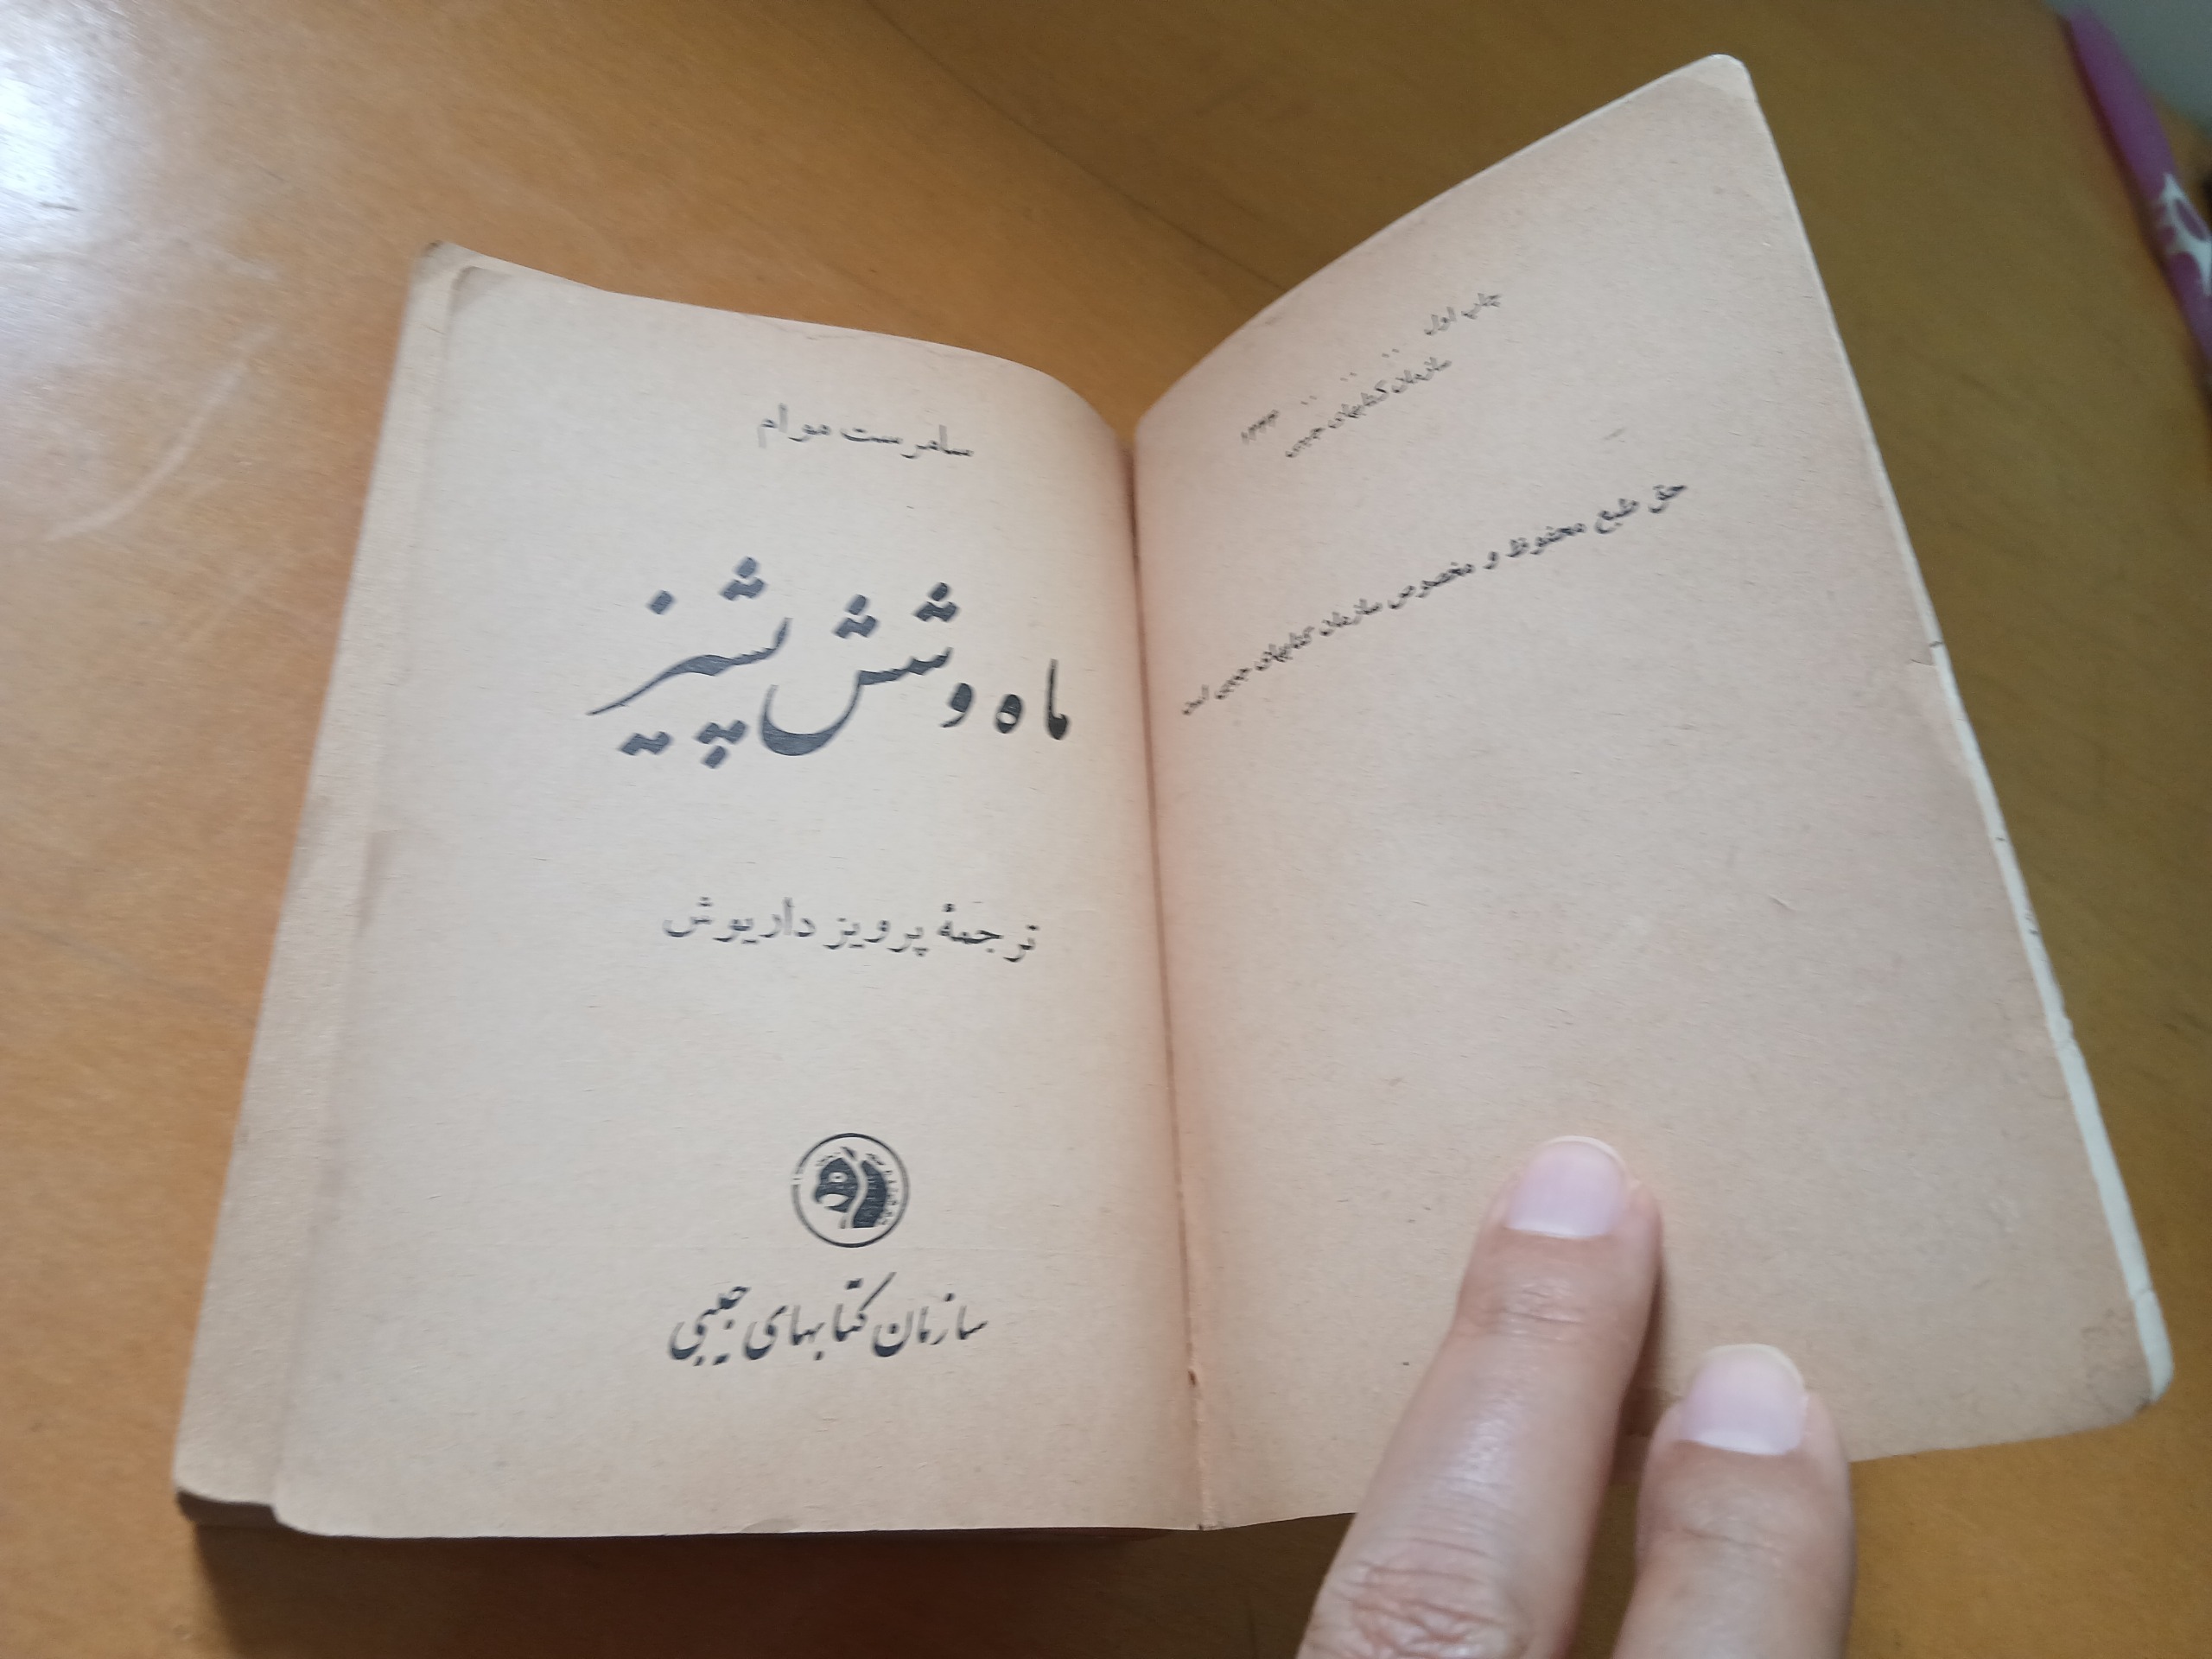 چاپ اول ۱۳۴۴
سازمان کتابهای جیبی
حق طبع محفوظ و مخصوص سازمان کتابهای جیبی است
سامرست موام
ماه و شش پشیز
ترجمهٔ پرویز داریوش
سازمان کتابهای جیبی